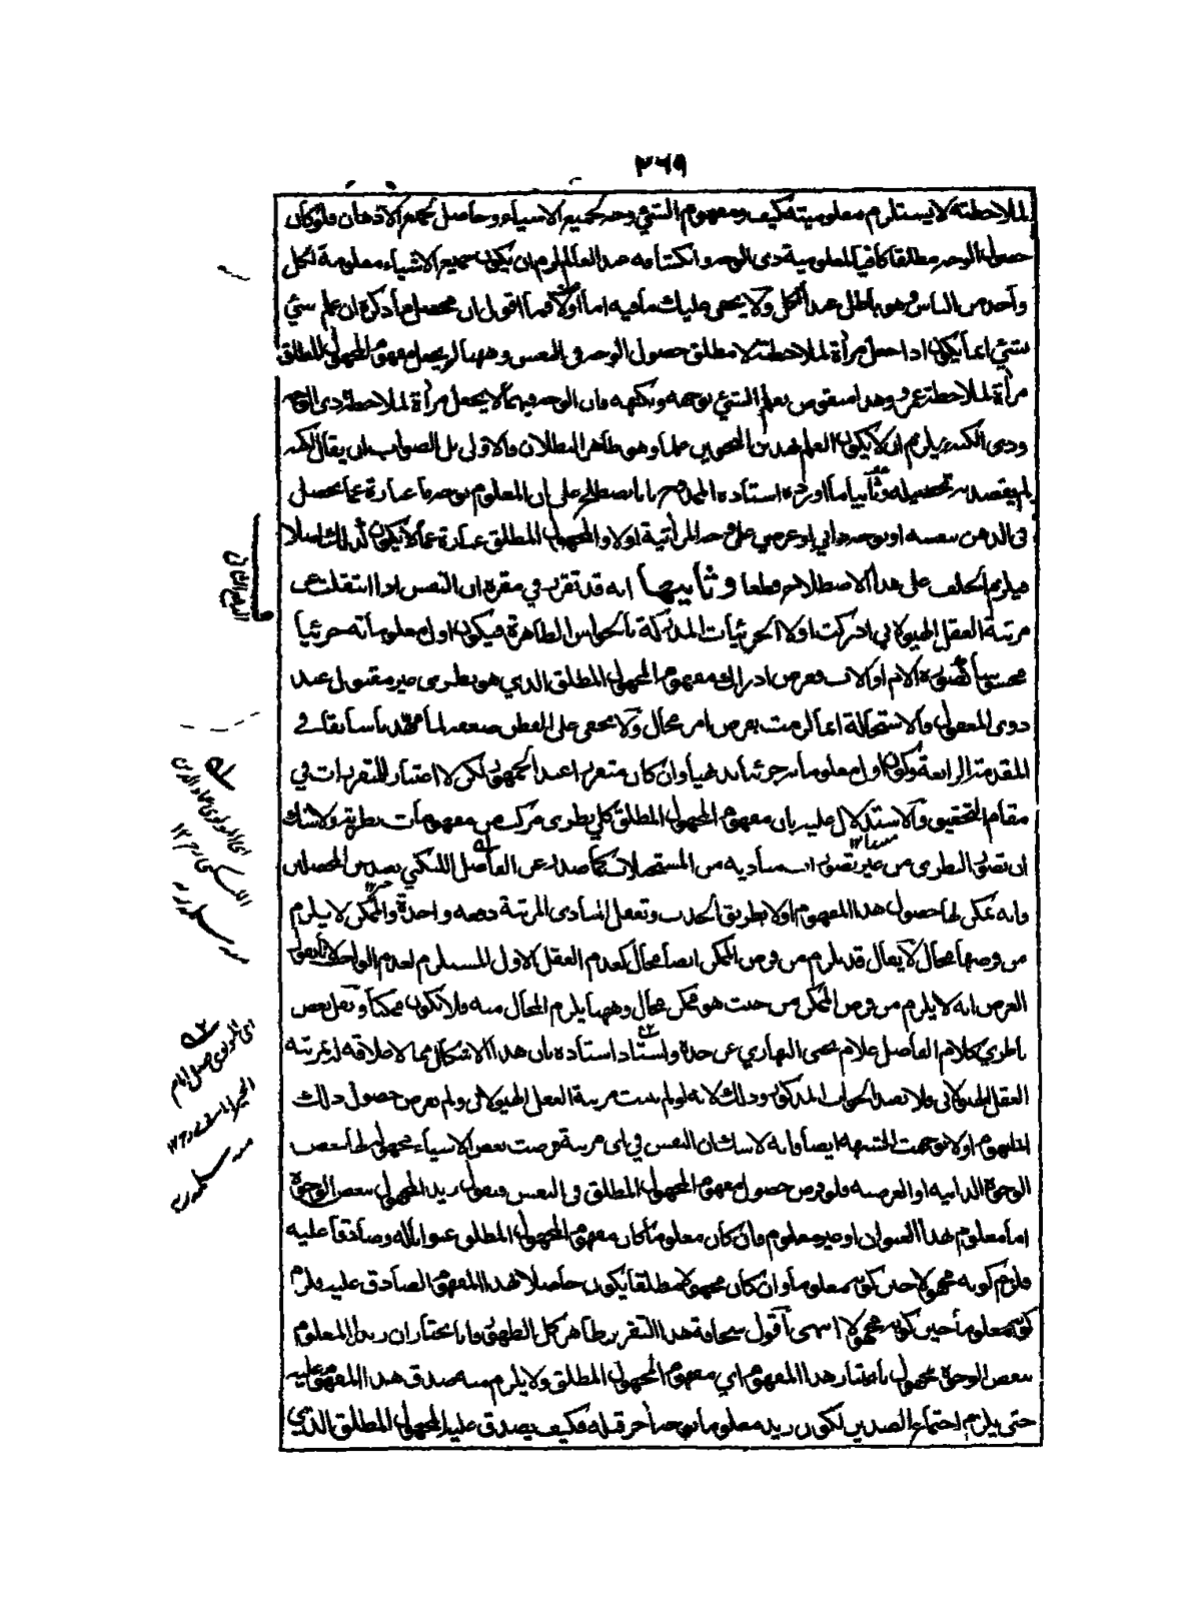 ٢٦٩
لملاحظته لا يستلزم معلوميته كيف ومفهوم الشيء وجه لجميع الاشياء وحاصل لجميع الاذهان فلو كان
حصول الوجه مطلقا كافيا لمعلومية ذي الوجه وانكشافه عند العالم لزم ان يكون جميع الاشياء معلومة لكل
واحد من الناس وهو باطل عند الكل ولا يخفى عليك ما فيه اما اولا فما اقول ان محصل ما ذكره ان علم شيء
بشيء انما يكون اذا جعل مرأة لملاحظته لا مطلق حصول الوجه في النفس وههنا لم يجعل مفهوم المجهول المطلق
مرأة لملاحظة وهذا منقوض بعلم الشيء بوجهه وبكنهه فان الوجه فيهما لا يجعل مرأة لملاحظة ذي الوجه
وذي الكنه فيلزم ان لا يكون العلم بهذين النحوين علما وهو ظاهر البطلان والاولى بل الصواب ان يقال لكنه
لم يقصد تحصيله وثانيا ما اورده استاذه بانا نصطلح على ان المعلوم بوجه ما عبارة عما يحصل
في الذهن بنفسه او بوجه ذاتي او عرضي على وجه المرأتية اولا والمجهول المطلق عبارة عما لا يكون كذلك اصلا
فيلزم الخلف على هذا الاصطلاح قطعا وثانيها انه قد تقرر في مقره ان النفس اذا انتقلت عن
مرتبة العقل الهيولاني ادركت اولا الجزئيات المدركة بالحواس الظاهرة فيكون اول معلوماته جزئيا
محسوسا كصورة الام اولا فرض ادراك مفهوم المجهول المطلق الذي هو نظري غير مقبول عند
ذوي العقول والاستحالة انما لزمت بفرض امر محال ولا يخفى على الفطن ضعفه لما سابقا في
المقدمة الرابعة وكون اول معلوماته جزئيا بديهيا وان كان متعررا عند الجمهور لكن لا اعتبار للتقريرات في
مقام التحقيق والاستدلال عليه بان مفهوم المجهول المطلق كلي نظري مركب من مفهومات نظرية ولا شك
ان تصور النظري من غير تصور مباديه من المستحيلات كما صدر عن الفاضل اللبكني بعيد من المحصلين
فانه يمكن لها حصول هذا المفهوم اولا بطريق الحدس وتعقل المبادي المرتبة دفعة واحدة والممكن لا يلزم
من فرضه محال لا يقال قد يلزم من فرض الممكن ايضا محال كعدم العقل الاول المستلزم لعدم الواجب لانا نقول
الغرض انه لا يلزم من فرض الممكن من حيث هو ممكن محال وههنا يلزم المحال منه فلا يكون ممكنا ونقل بعض
ناظري كلام الفاضل غلام يحيى البهاري عن جده واستاذ استاذه بان هذا الاشكال مما لا علاقة له بمرتبة
العقل الهيولاني فلا يفيد الجواب المذكور وذلك لانه لو لم يثبت مرتبة العقل الهيولاني ولم يفرض حصول ذلك
المفهوم اولا توجهت الشبهة ايضا فانه لا شك ان النفس في اي مرتبة فرضت بعض الاشياء مجهول لها ببعض
الوجوه الذاتية او العرضية فلو فرض حصول مفهوم المجهول المطلق في النفس فنقول زيد المجهول ببعض الوجوه
اما معلوم بهذا العنوان او غير معلوم فان كان معلوما كان مفهوم المجهول المطلق عنوانا له وصادقا عليه
فلزم كونه مجهولا حين كونه معلوما وان كان مجهولا مطلقا يكون حاصلا بهذا المفهوم الصادق عليه فلزم
كونه معلوما حين كونه مجهولا انتهى اقول سخافة هذا التقرير ظاهر كل الظهور فانا نختار ان زيدا المعلوم
ببعض الوجوه مجهول باعتبار هذا المفهوم اي مفهوم المجهول المطلق ولا يلزم منه صدق هذا المفهوم عليه
حتى يلزم اجتماع الضدين لكون زيد معلوما بوجه آخر قبله فكيف يصدق عليه المجهول المطلق الذي